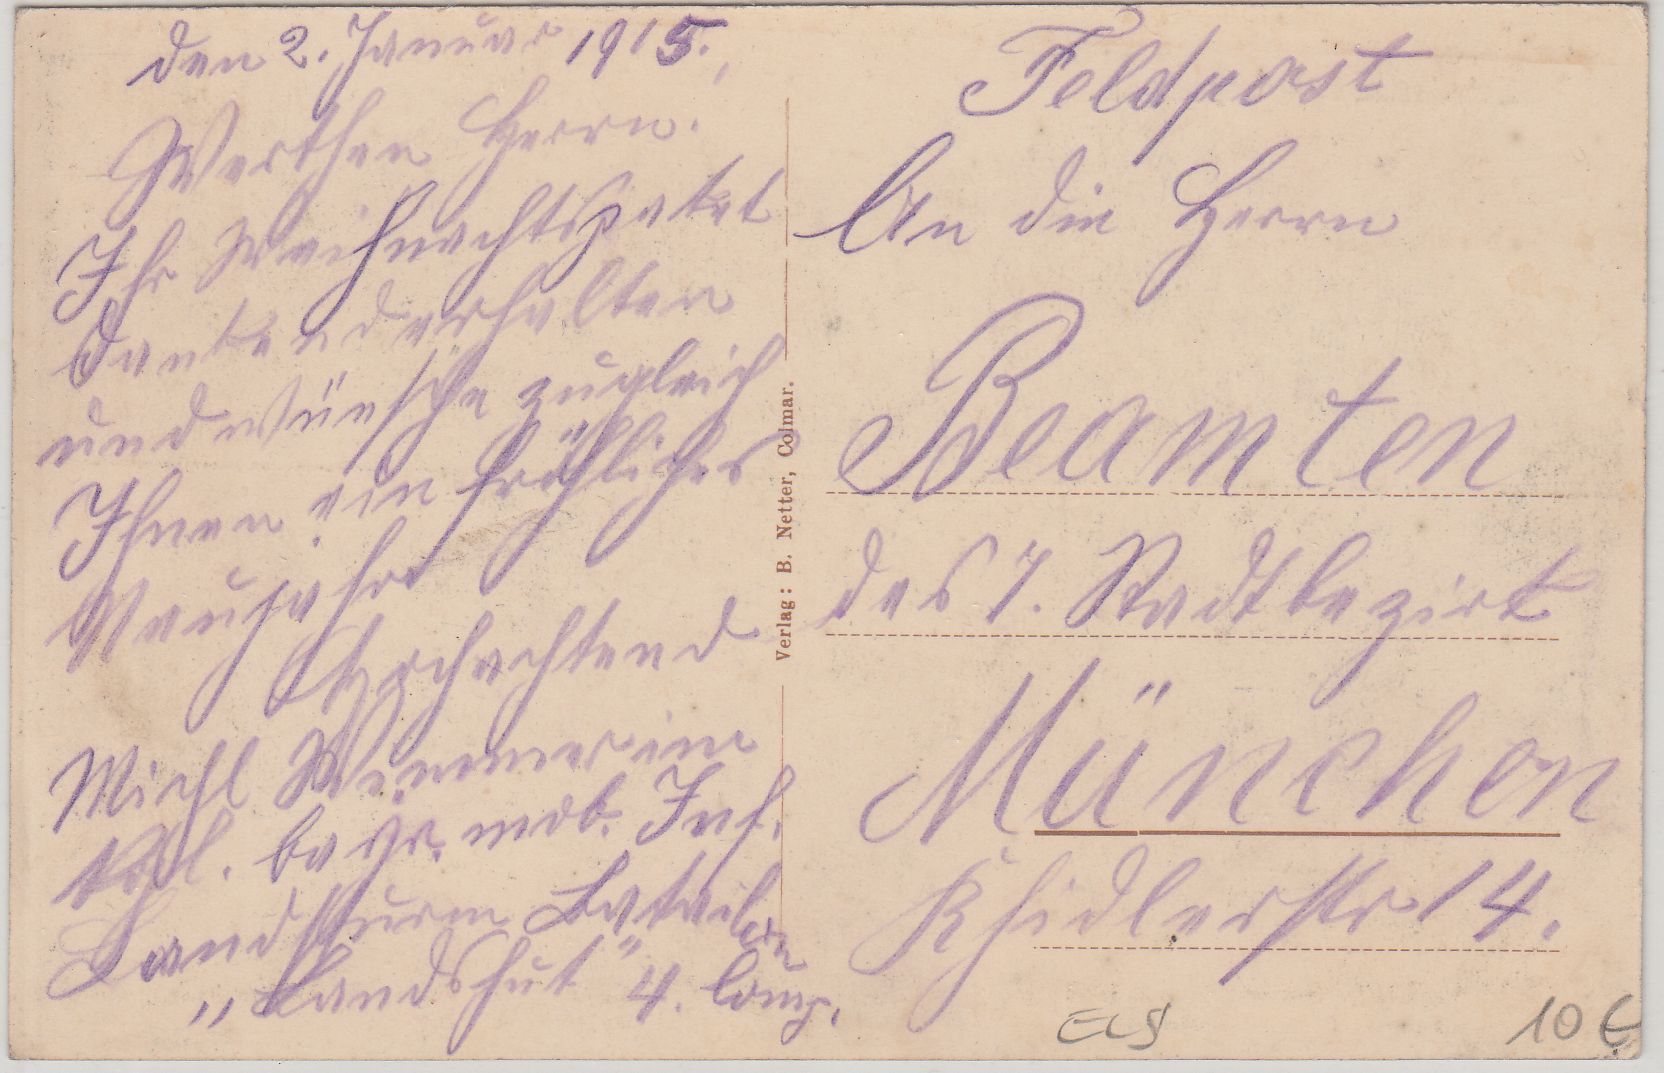 den 2. Januar 1915.,
Werthen Herrn.
Ihr Weihnachtspaket
dankend erhalten
und wünsche zugleich
Ihnen ein fröhliches
Neujahr
Hochachtend
Michl Wimmer im
kgl. bayr. mob. Inf.
Landsturm Batailon
„Landshut" 4. Comp.
Verlag: B. Netter, Colmar.
Feldpost
An die Herrn
Beamten
des 7. Stadtbezirk
München
14.
10 €